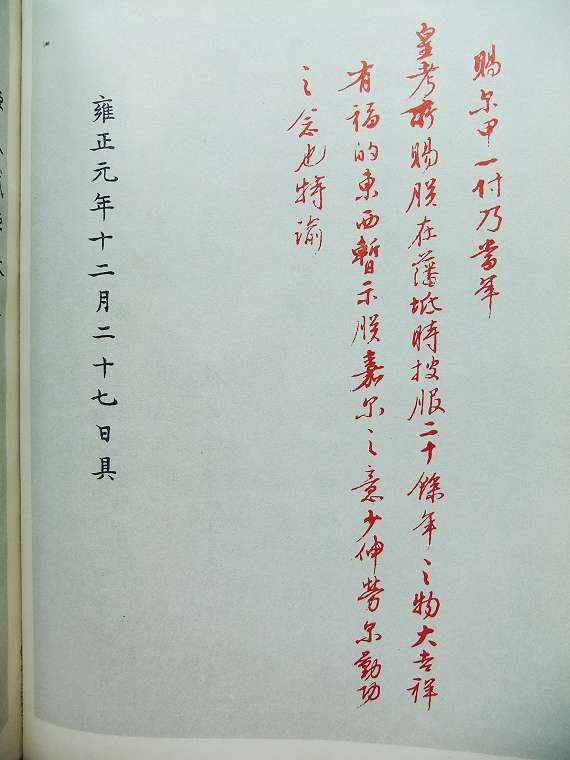 賜尔甲一付乃當年
皇考所賜朕在藩坻時披服二十餘年之物大吉祥
有福的東西暫示朕嘉尔之意少伸勞尔勤功
之念也特諭
雍正元年十二月二十七日具